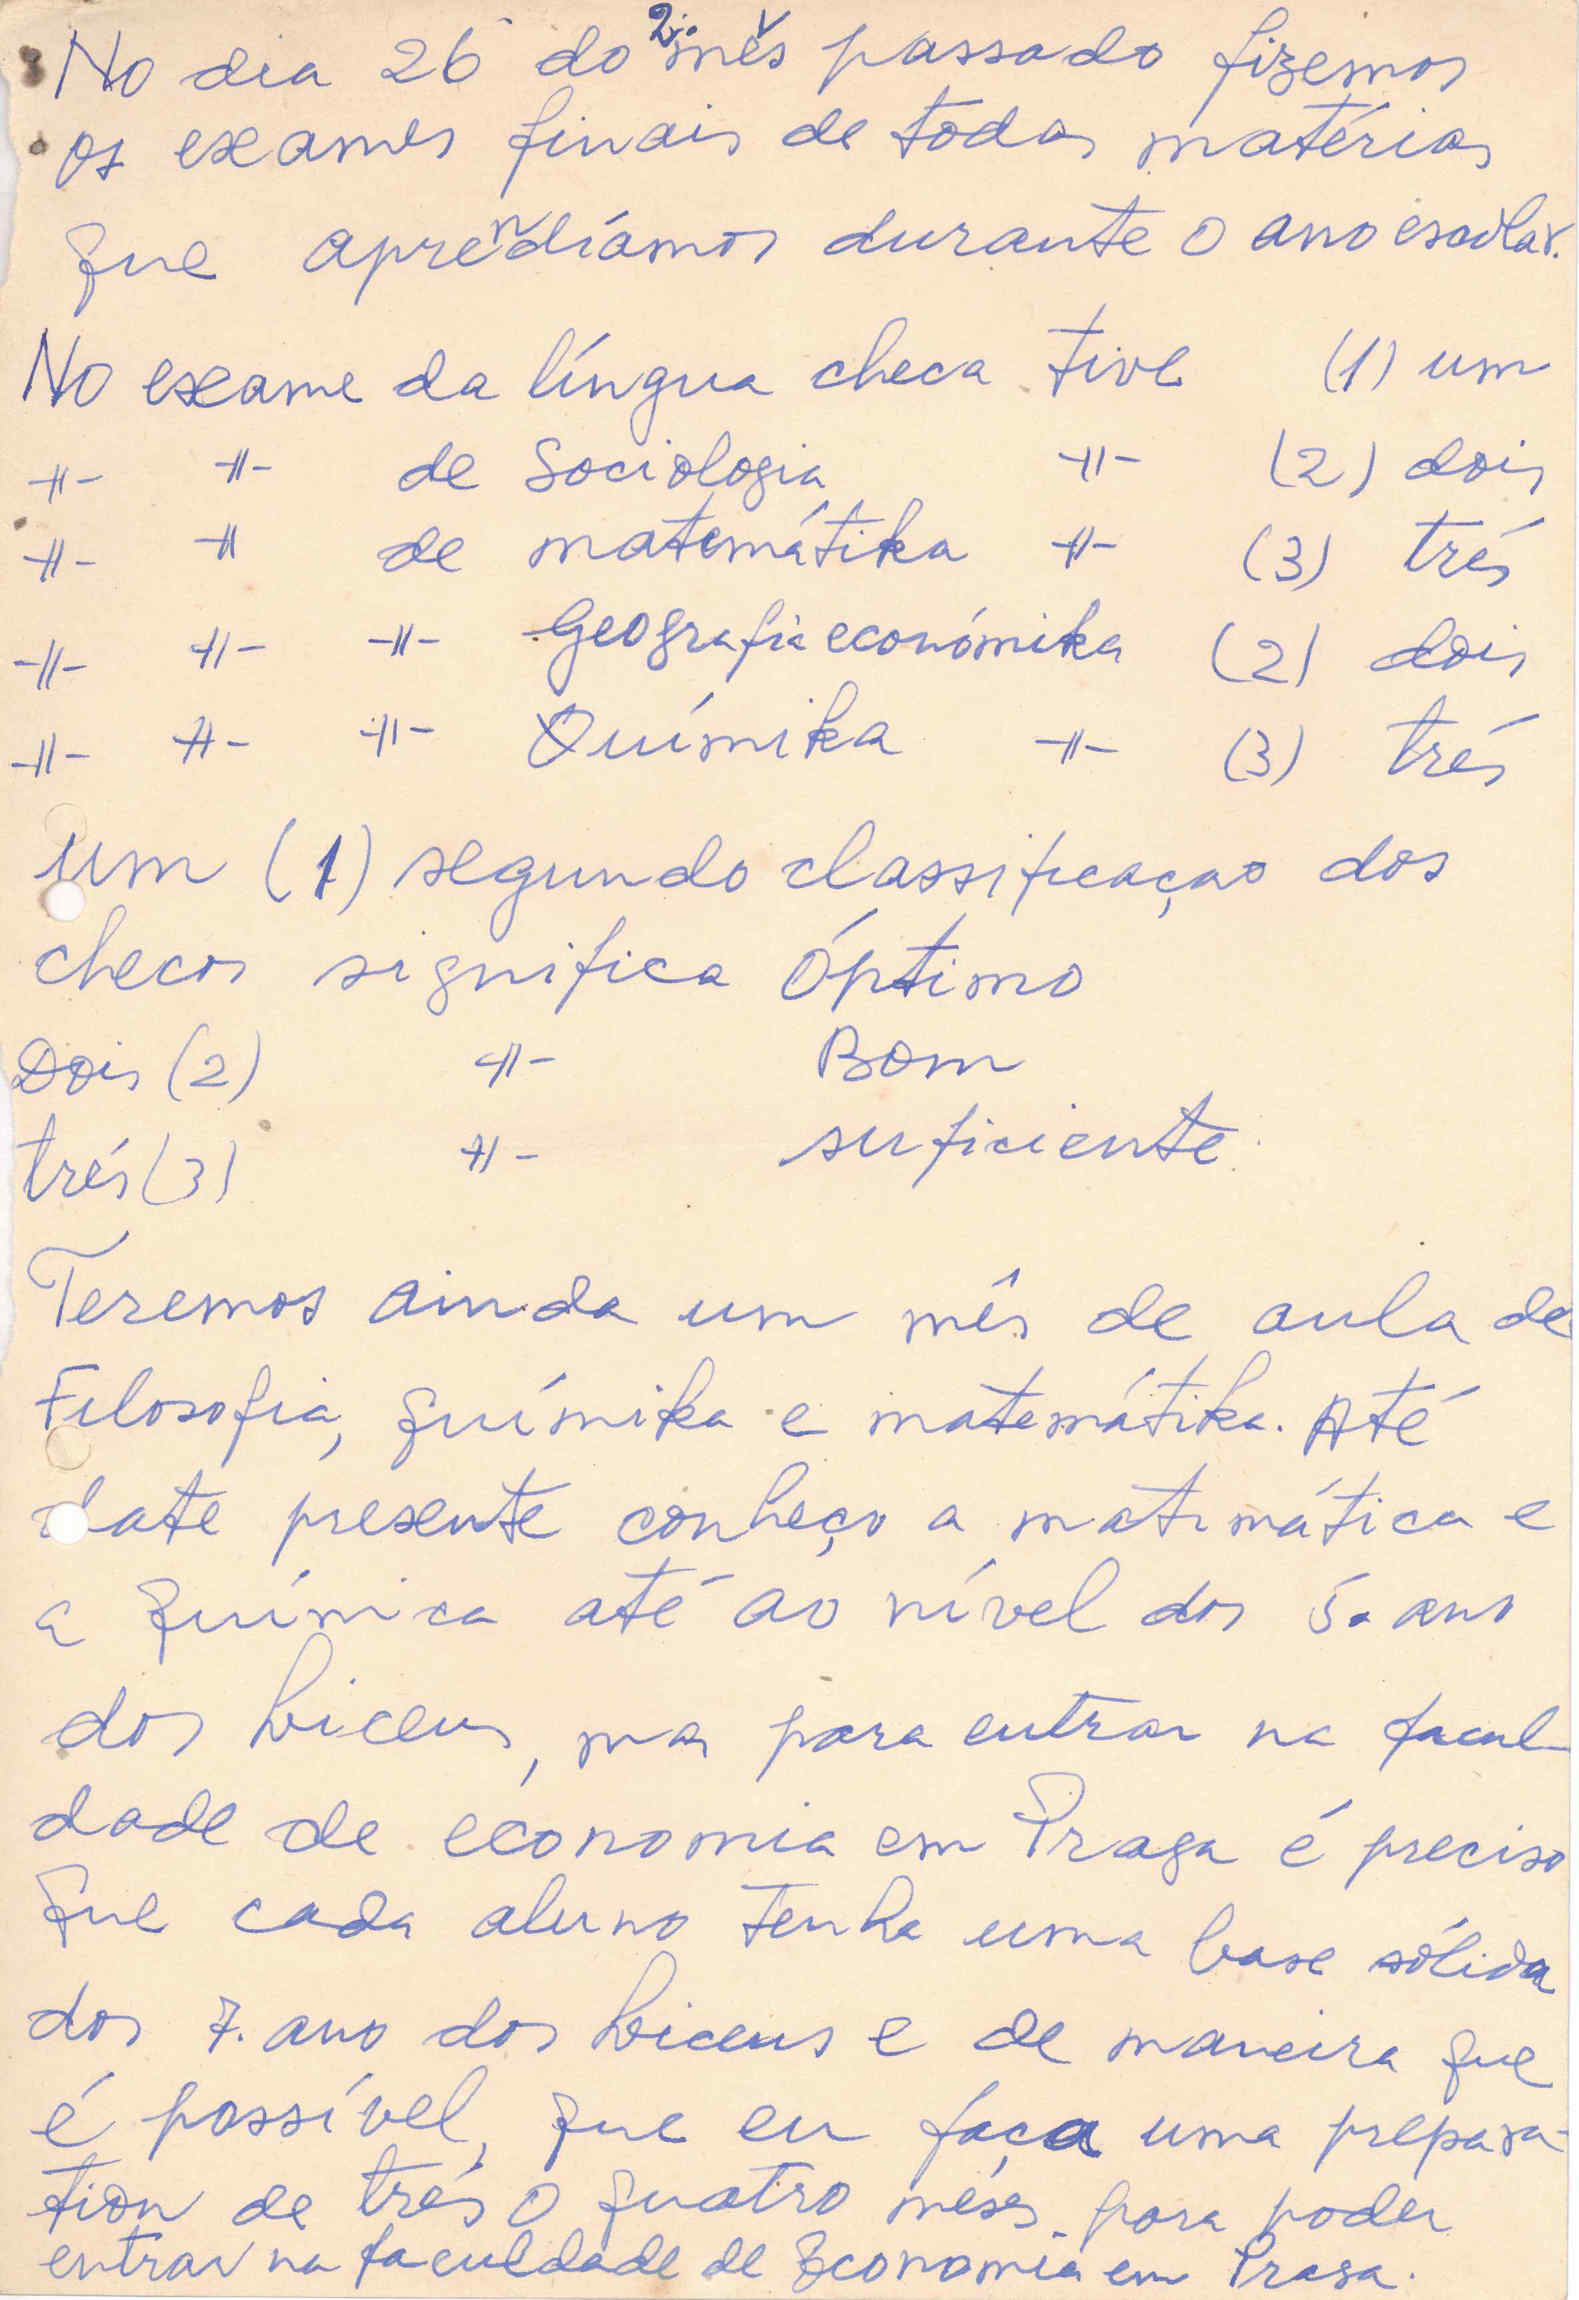 No dia 26 do 2.º mês passado fizemos
os exames finais de todas matérias
que aprendíamos durante o ano escolar.
No exame da língua checa tive (1) um
-||- -||- de Sociologia -||- (2) dois
-||- -|| de matemátika -||- (3) trés
-||- -||- -||- Geografia económika (2) dois
-||- -||- -||- Químika -||- (3) trés
um (1) segundo classificaçao dos
checos significa Óptimo
Dois (2) -||- Bom
trés (3) -||- suficiente.
Teremos ainda um mês de aula de
Filosofia, químika e matemátika. Até
date presente conheço a matimática e
a química até ao nível dos 5. ano
dos Liceus, mas para entrar na facul-
dade de economia em Praga é preciso
que cada aluno tenha uma base sólida
dos 7. ano dos Liceus e de maneira que
é possível, que eu faça uma prepara-
tion de trés o quatro méses para poder
entrar na faculdade de Economia em Praga.